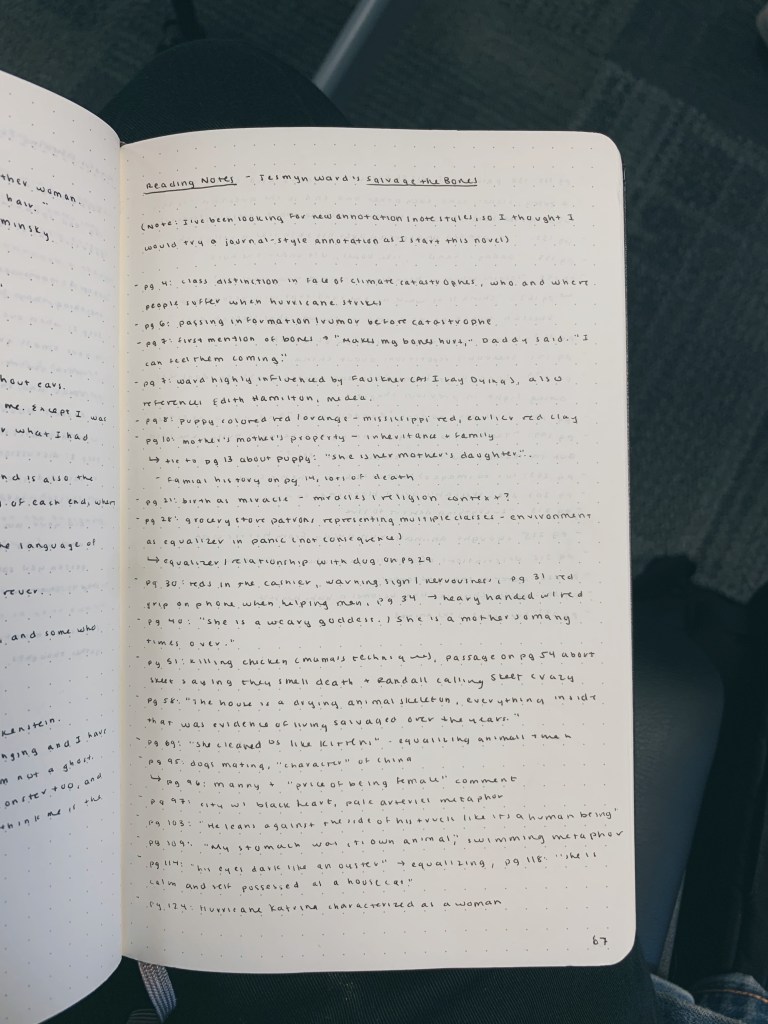 ther woman.
hair."
minsky
hout ears.
me. Except I was
r what I had
nd is also the
of each end, when
he language of
rever.
and some who
kenstein.
nging and I have
m not a ghost.
onster too, and
think me is the
Reading Notes - Jesmyn Ward's Salvage the Bones
(Note: I've been looking for new annotation/note styles, so I thought I
would try a journal-style annotation as I start this novel)
- pg 4: class distinction in face of climate catastrophes, who and where
people suffer when hurricane strikes
- pg 6: passing information/rumor before catastrophe
- pg 7: first mention of bones → "Makes my bones hurt," Daddy said. "I
can feel them coming."
- pg 7: Ward highly influenced by Faulkner (As I Lay Dying), also
references Edith Hamilton, Medea.
- pg 8: puppy colored red/orange - mississippi red, earlier red clay
- pg 10: mother's mother's property - inheritance + family
↳ tie to pg 13 about puppy: "she is her mother's daughter."
- familial history on pg 14, lots of death
- pg 21: birth as miracle - miracles/religion context?
- pg 28: grocery store patrons representing multiple classes - environment
as equalizer in panic (not consequence)
↳ equalizer/relationship with dog on pg 29
- pg 30: reds in the cashier, warning sign/nervousness, pg 31 red
grip on phone when helping man, pg 34 → heavy handed w/ red
- pg 40: "She is a weary goddess. / She is a mother so many
times over."
- pg 51: killing chicken (mama's technique), passage on pg 54 about
skeet saying they smell death + Randall calling skeet crazy
- pg 58: "The house is a drying animal skeleton, everything inside
that was evidence of living salvaged over the years."
- pg 69: "she cleaned us like kittens" - equalizing animals + men
- pg 95: dogs mating, "character" of China
↳ pg 96: manny + "price of being female" comment
- pg 97: city w/ black heart, pale arteries metaphor
- pg 103: "He leans against the side of his truck like it's a human being"
- pg 109: "My stomach was its own animal," swimming metaphor
- pg 114: "his eyes dark like an oyster" → equalizing, pg 118: "she is
calm and self possessed as a house cat"
- pg 124: Hurricane Katrina characterized as a woman
67